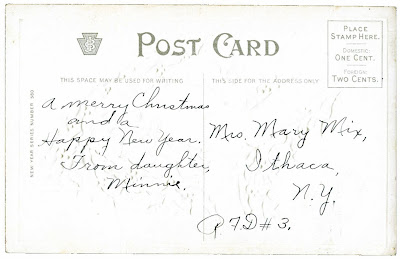 POST CARD
PLACE
STAMP HERE.
DOMESTIC:
ONE CENT.
FOREIGN:
TWO CENTS.
THIS SPACE MAY BE USED FOR WRITING
THIS SIDE FOR THE ADDRESS ONLY
A merry Christmas
and a
Happy New Year.
From daughter,
Minnie.
Mrs. Mary Mix,
Ithaca,
N.Y.
R F.D # 3.